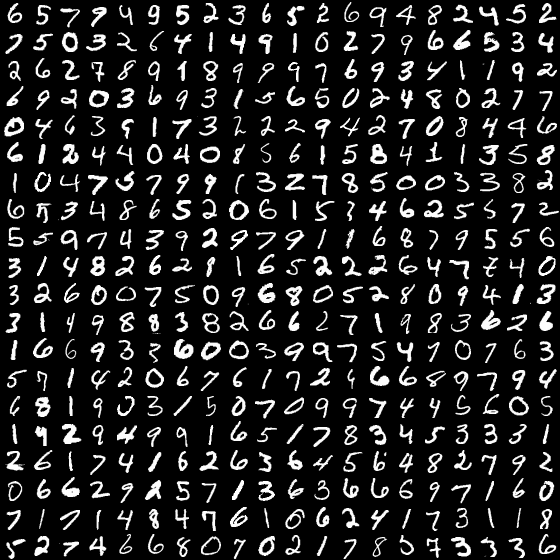 6 5 7 9 4 9 5 2 3 6 5 2 6 9 4 8 2 4 5 2
7 5 0 3 2 6 4 1 4 9 1 0 2 7 9 6 6 5 3 4
2 6 2 7 8 9 1 8 9 9 9 7 6 9 3 4 1 1 9 2
6 9 2 0 3 6 9 3 1 5 6 5 0 2 4 8 0 2 7 7
0 4 6 3 9 1 7 3 2 2 2 9 4 2 7 0 8 4 4 6
6 1 2 4 4 0 4 0 8 5 6 1 5 8 4 1 1 3 5 8
1 0 4 7 5 7 9 9 1 3 2 7 8 5 0 0 3 3 8 2
6 3 4 8 6 5 2 0 6 1 5 4 6 2 5 5 7 2
5 5 9 7 4 3 9 2 9 7 9 1 1 6 8 7 9 5 5 6
3 1 4 8 2 6 2 9 1 6 5 2 2 2 6 4 7 7 4 0
3 2 6 0 0 7 5 0 9 6 8 0 5 2 8 0 9 4 1 3
3 1 4 9 8 8 3 8 2 6 6 2 7 1 9 8 3 6 2 6
1 6 6 9 3 3 6 0 0 3 9 9 7 5 4 7 0 7 6 3
5 7 1 4 2 0 6 7 6 1 7 2 6 6 6 8 9 7 9 4
6 8 1 9 0 3 1 5 0 7 0 9 9 7 4 4 5 6 0 5
1 9 2 9 4 9 9 1 6 5 1 7 8 3 4 5 3 3 3 1
2 6 1 7 4 1 6 2 6 3 6 4 5 6 4 8 2 7 9 2
0 6 6 2 9 2 5 7 1 3 6 3 6 6 6 9 7 1 6 0
7 1 7 1 4 8 4 7 6 1 0 6 2 4 1 7 3 1 1 8
5 2 7 4 6 6 8 0 7 0 2 1 7 8 5 7 3 3 3 6